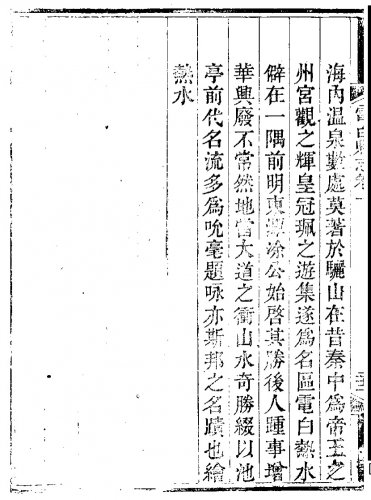 海內溫泉數處莫著於驪山在昔秦中爲帝王之
州宮觀之輝皇冠珮之遊集遂爲名區電白熱水
僻在一隅前明東涂公始啓其勝後人踵事增
華興廢不常然地當大道之衝山水奇勝綴以池
亭前代名流多爲吮毫題咏亦斯邦之名蹟也繪
熱水